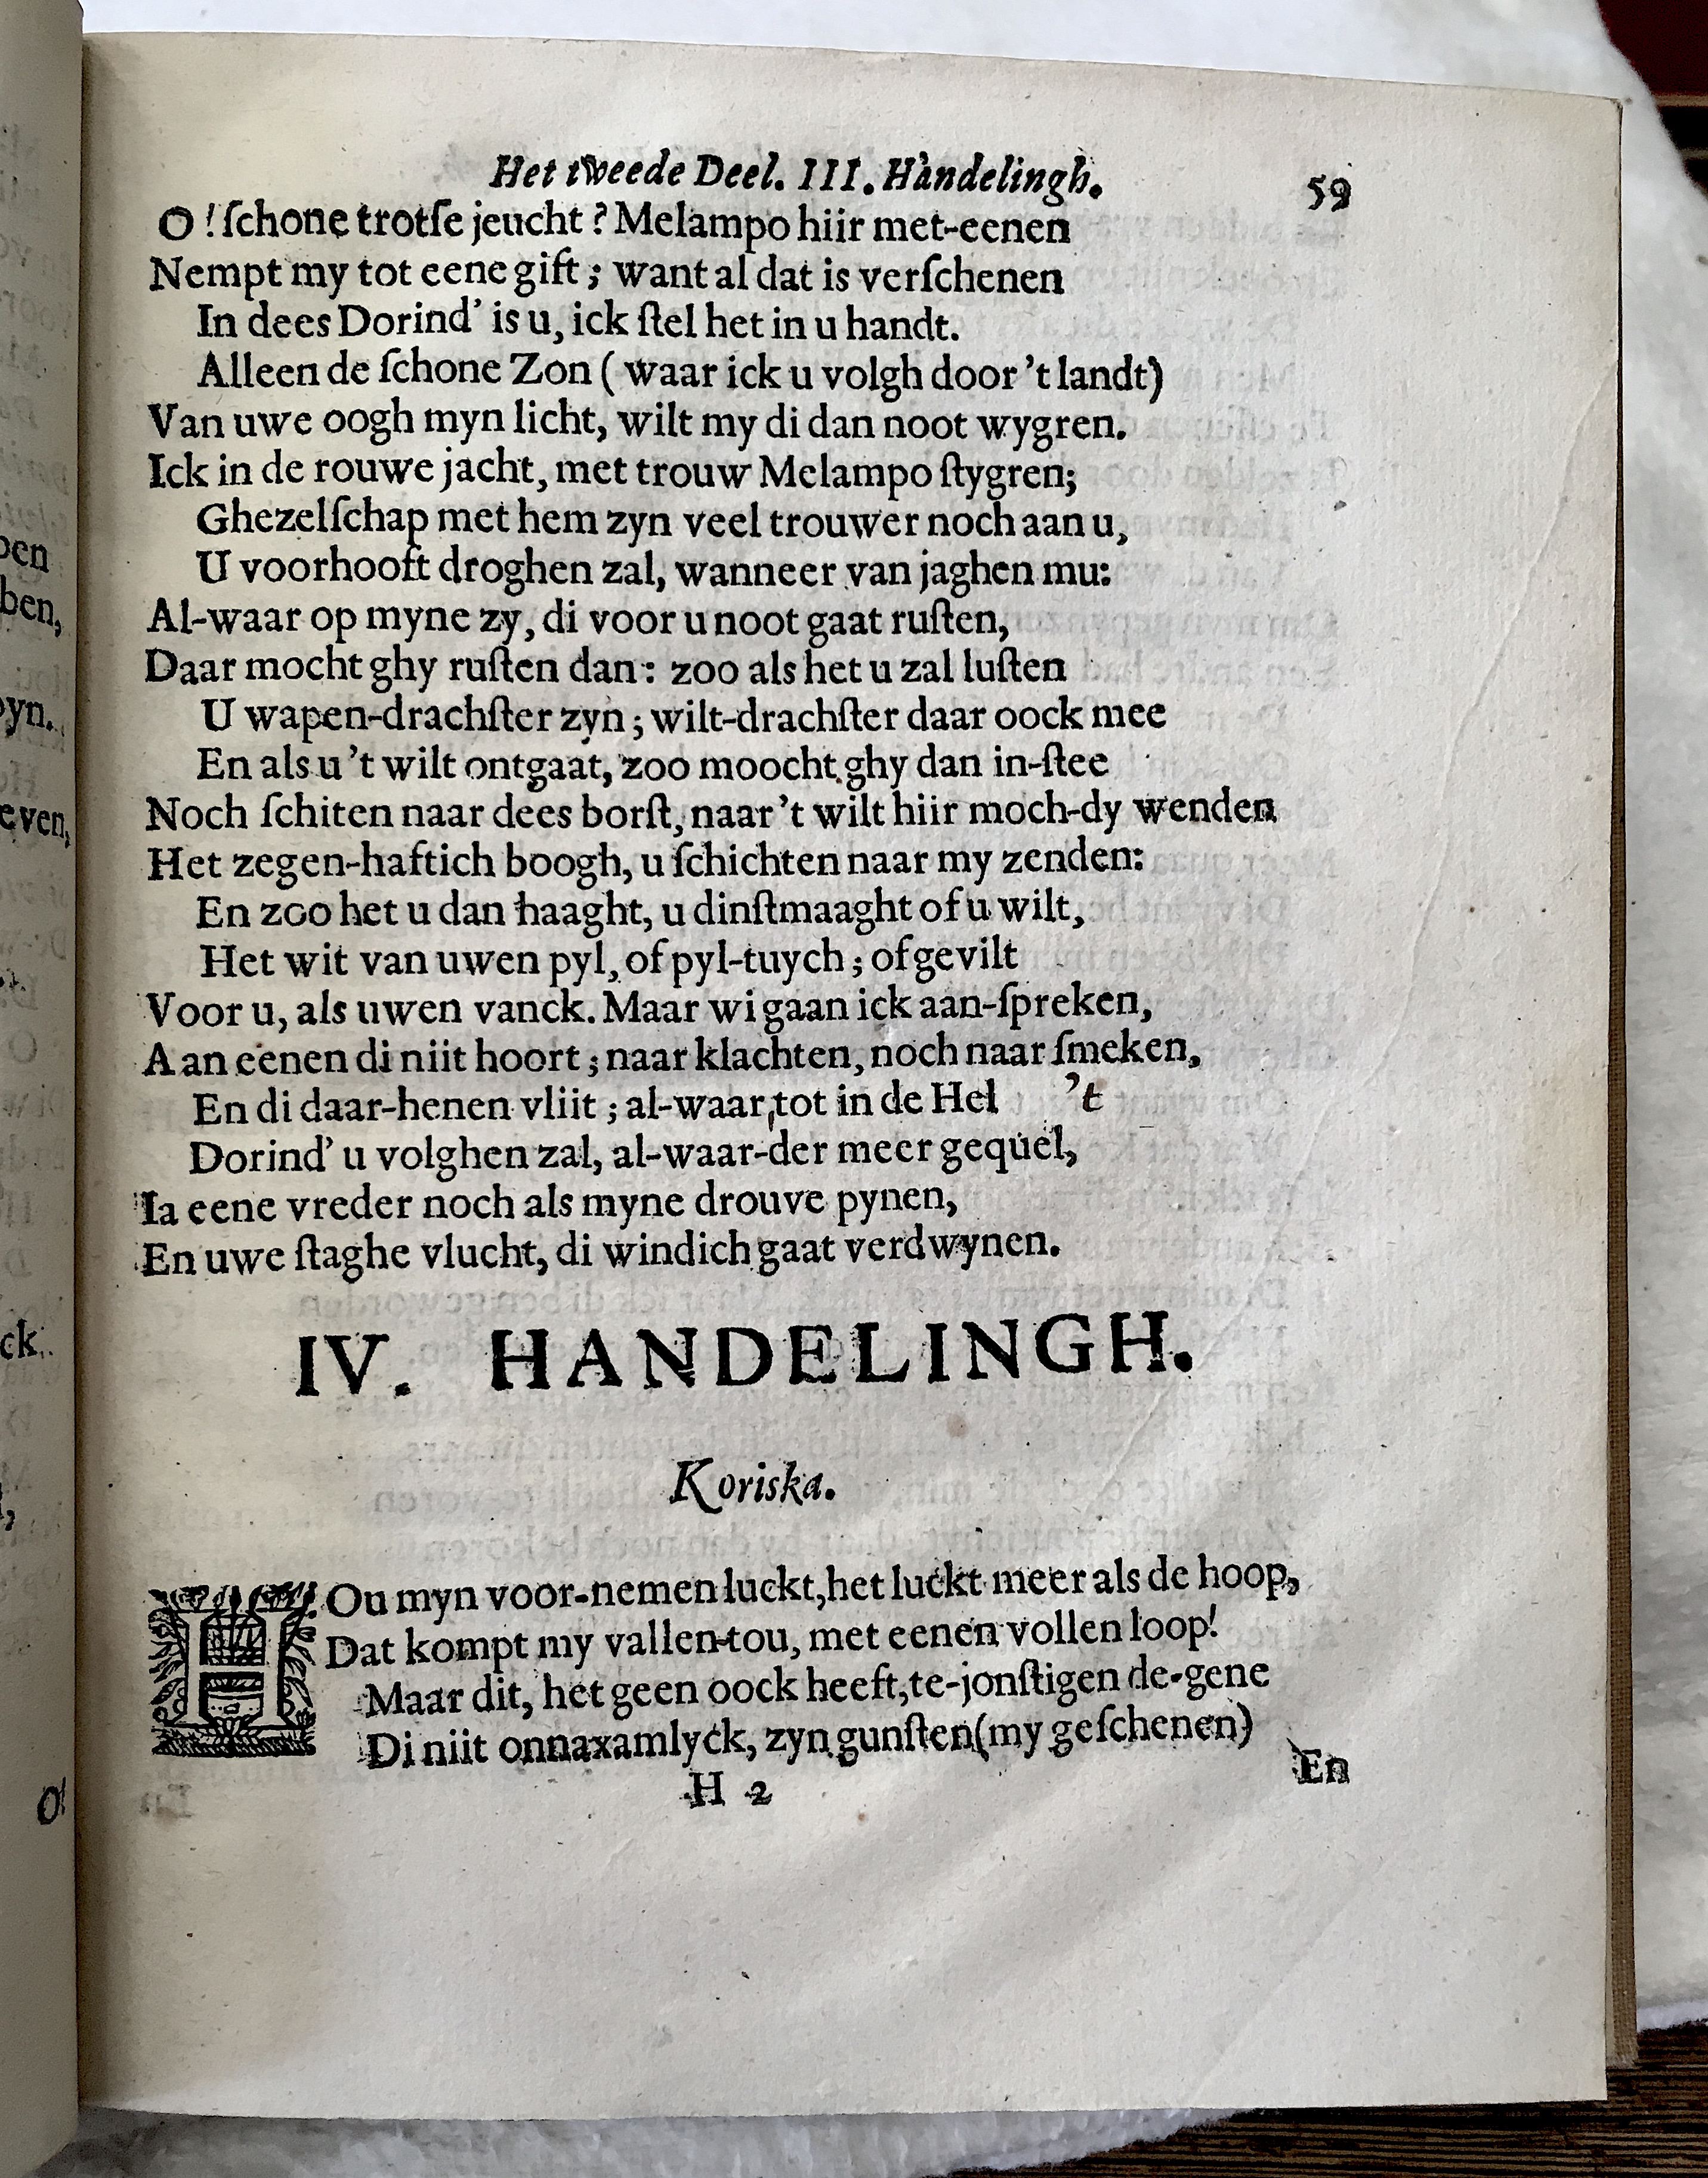 Het tweede Deel. III. Handelingh. 59
O! ſchone trotſe jeucht? Melampo hiir met-eenen
Nempt my tot eene gift; want al dat is verſchenen
In dees Dorind' is u, ick ſtel het in u handt.
Alleen de ſchone Zon (waar ick u volgh door 't landt)
Van uwe oogh myn licht, wilt my di dan noot wygren.
Ick in de rouwe jacht, met trouw Melampo ſtygren;
Ghezelſchap met hem zyn veel trouwer noch aan u,
U voorhooft droghen zal, wanneer van jaghen mu:
Al-waar op myne zy, di voor u noot gaat ruſten,
Daar mocht ghy ruſten dan: zoo als het u zal luſten
U wapen-drachſter zyn; wilt-drachſter daar oock mee
En als u 't wilt ontgaat, zoo moocht ghy dan in-ſtee
Noch ſchiten naar dees borſt, naar 't wilt hiir moch-dy wenden
Het zegen-haftich boogh, u ſchichten naar my zenden:
En zoo het u dan haaght, u dinſtmaaght of u wilt,
Het wit van uwen pyl, of pyl-tuych; of gevilt
Voor u, als uwen vanck. Maar wi gaan ick aan-ſpreken,
Aan eenen di niit hoort; naar klachten, noch naar ſmeken,
En di daar-henen vliit; al-waar tot in de Hel 't
Dorind' u volghen zal, al-waar-der meer gequel,
Ia eene vreder noch als myne drouve pynen,
En uwe ſtaghe vlucht, di windich gaat verdwynen.
IV. HANDELINGH.
Koriska.
HOu myn voor-nemen luckt, het luckt meer als de hoop,
Dat kompt my vallen-tou, met eenen vollen loop!
Maar dit, het geen oock heeft, te-jonſtigen de-gene
Di niit onnaxamlyck, zyn gunſten (my geſchenen)
H 2 En
ben
ben,
pyn.
even,
ck.
O!